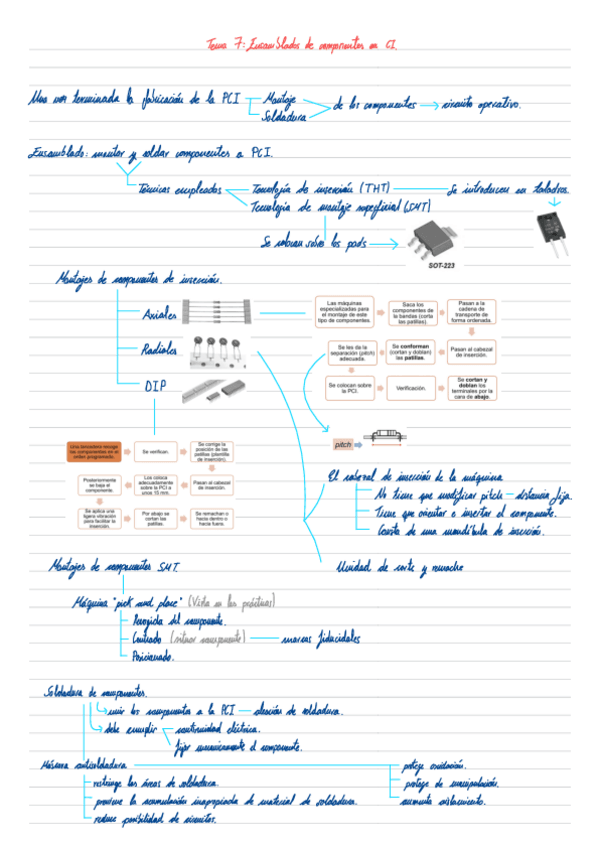 Tema 7: Ensamblados de componentes en CI.
Una vez terminada la fabricación de la PCI
Montaje
Soldadura
de los componentes
circuito operativo.
Ensamblado: montar y soldar componentes a PCI.
Técnicas empleadas
Tecnología de inserción (THT)
Se introducen en taladros.
Tecnología de montaje superficial (SMT)
Se colocan sobre los pads
SOT-223
Montajes de componentes de inserción.
Axiales
Radiales
DIP
Las máquinas especializadas para el montaje de este tipo de componentes.
Saca los componentes de la bandas (corta las patillas).
Pasan a la cadena de transporte de forma ordenada.
Se les da la separación (pitch) adecuada.
Se conforman (cortan y doblan) las patillas.
Pasan al cabezal de inserción.
Se colocan sobre la PCI.
Verificación.
Se cortan y doblan los terminales por la cara de abajo.
pitch
Una lanzadera recoge los componentes en el orden programado.
Se verifican.
Se corrige la posición de las patillas (plantilla de inserción).
Posteriormente se baja el componente.
Los coloca adecuadamente sobre la PCI a unos 10 mm.
Pasan al cabezal de inserción.
Se aplica una ligera vibración para facilitar la inserción.
Por abajo se cortan las patillas.
Se remachan o hacia dentro o hacia fuera.
El cabezal de inserción de la máquina
No tiene que modificar pitch — distancia fija.
Tiene que orientar e insertar el componente.
Consta de una mandíbula de inserción.
Unidad de corte y remache
Montajes de componentes SMT.
Máquina "pick and place" (Vista en las prácticas)
Recogida del componente.
Centrado (situar componente)
marcas fiduciales
Posicionado.
Soldadura de componentes.
unir los componentes a la PCI — aleación de soldadura.
debe cumplir
continuidad eléctrica.
fijar mecánicamente el componente.
Máscara antisoldadura
protege oxidación.
restringe las áreas de soldadura.
protege de manipulación.
previene la acumulación inapropiada de material de soldadura.
aumenta aislamiento.
reduce posibilidad de circuitos.